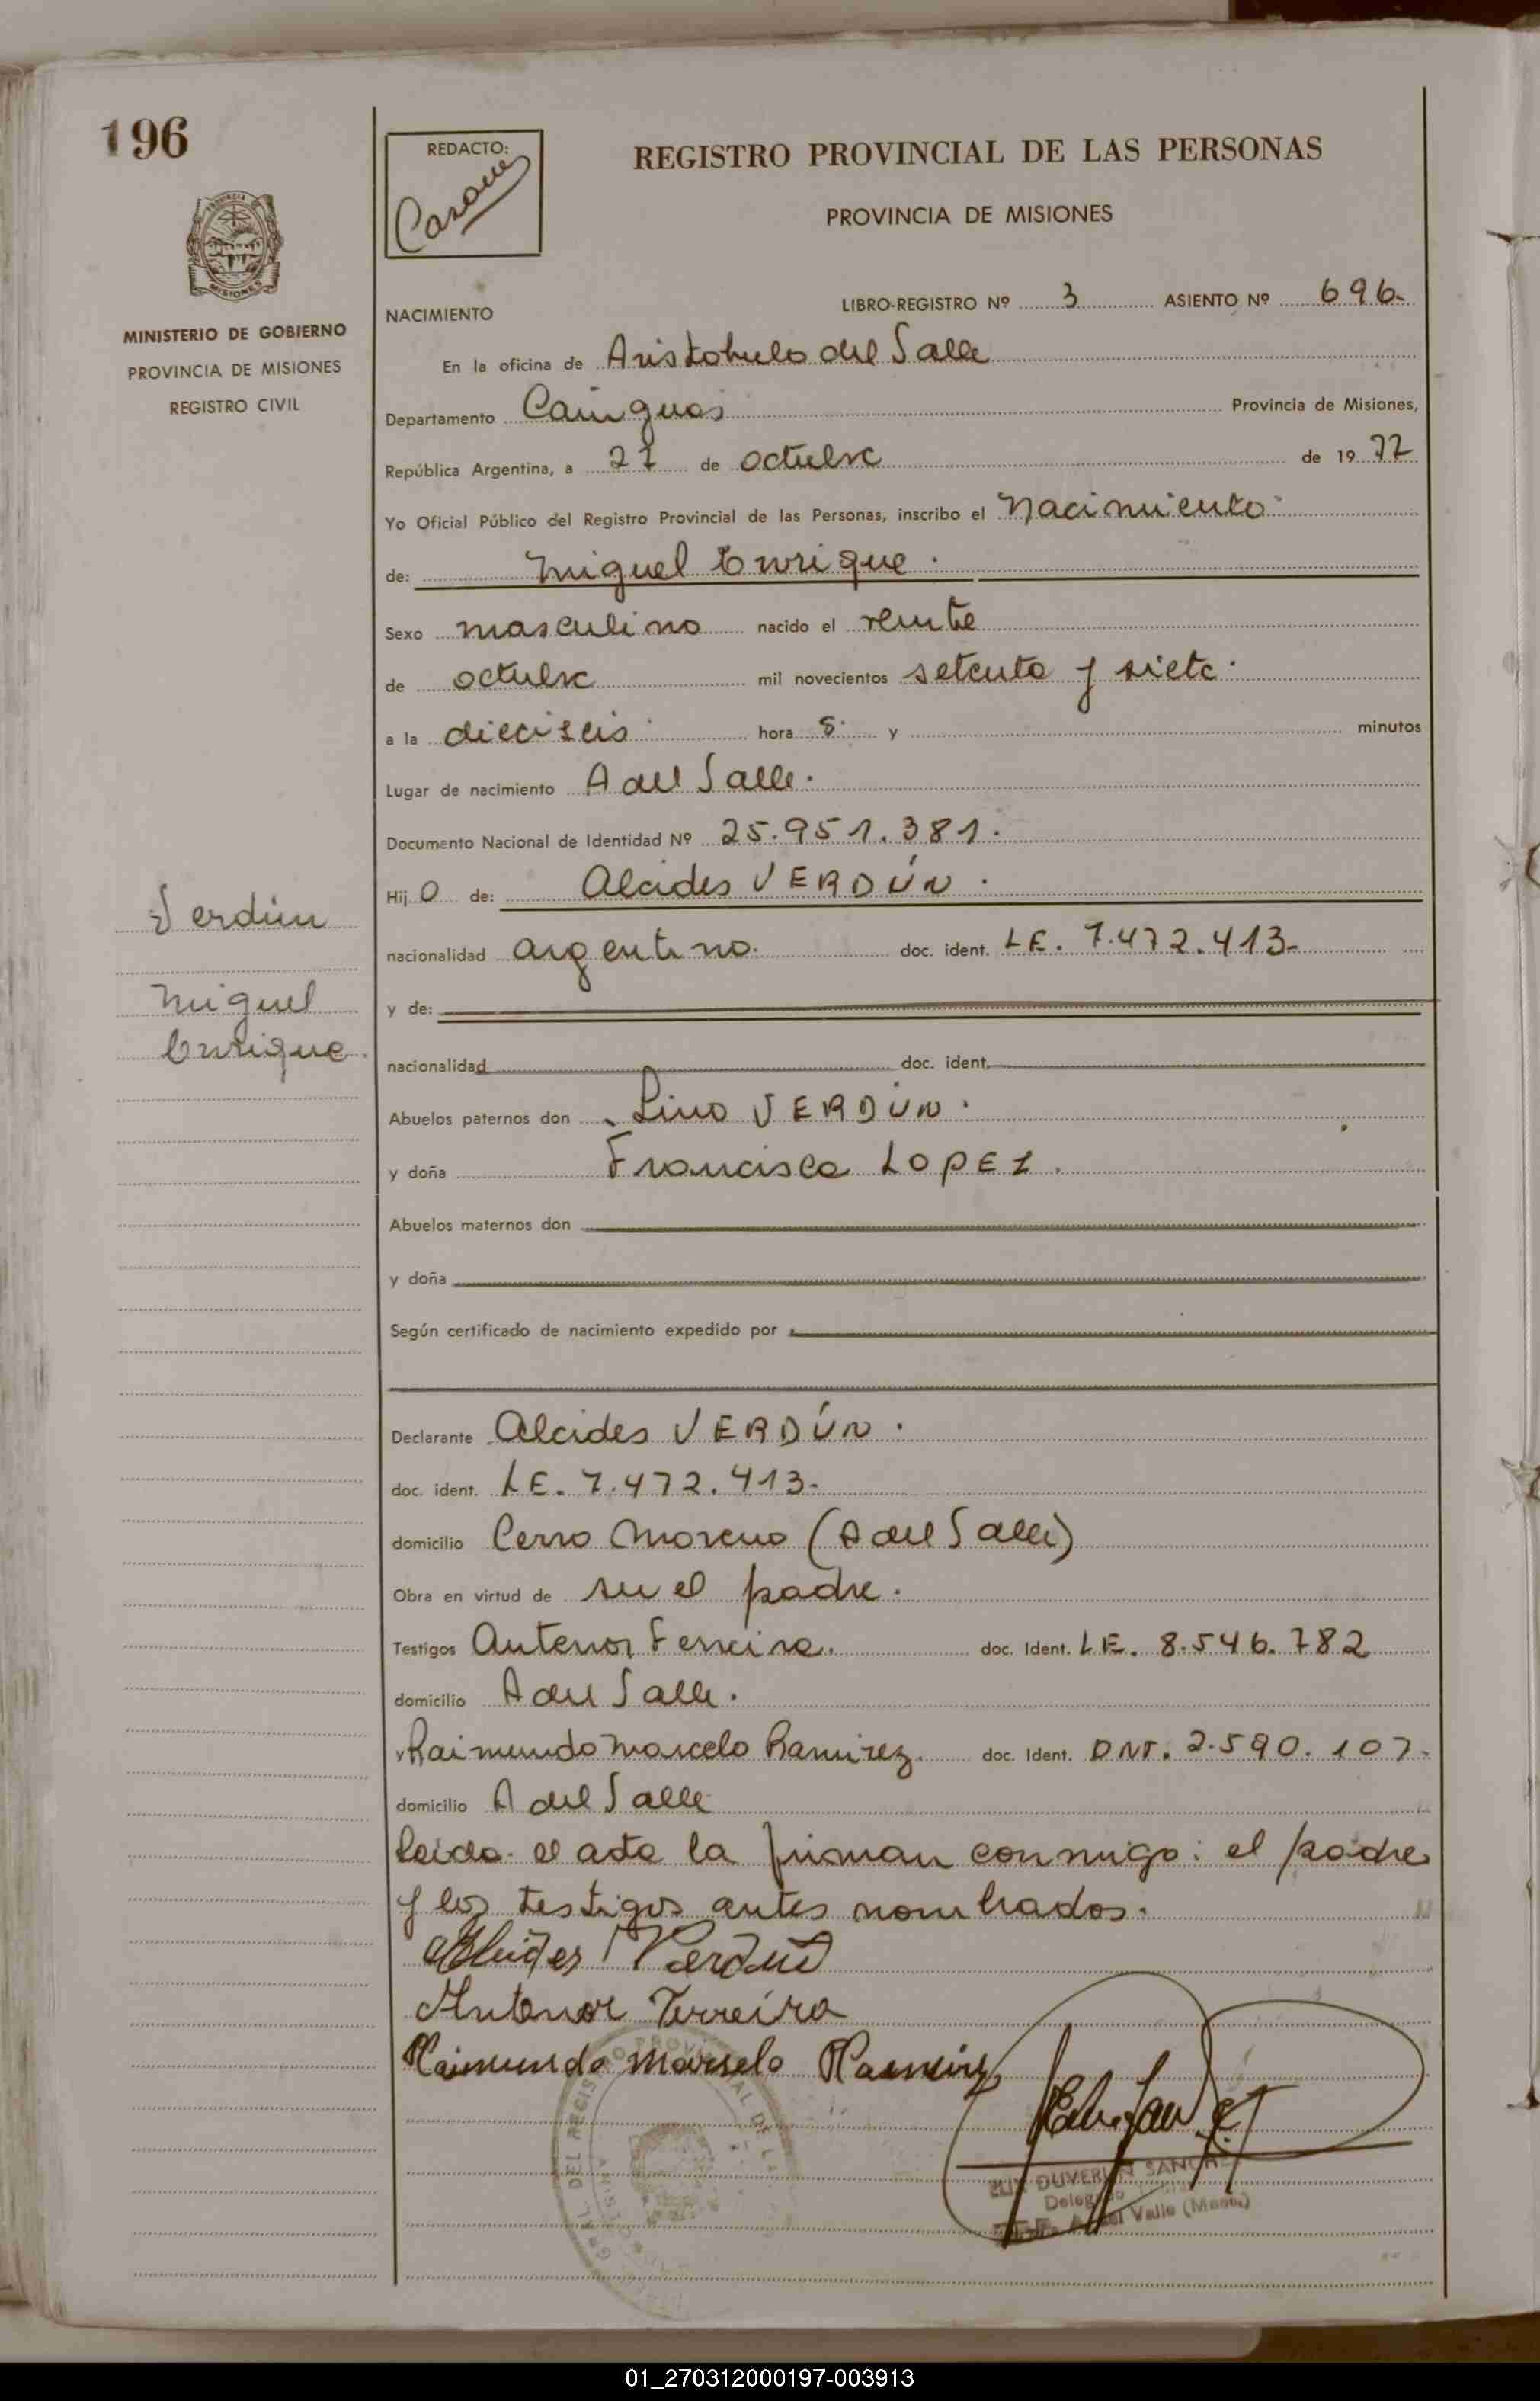 196
REDACTO:
REGISTRO PROVINCIAL DE LAS PERSONAS
PROVINCIA DE MISIONES
MISIONES
MINISTERIO DE GOBIERNO
PROVINCIA DE MISIONES
REGISTRO CIVIL
NACIMIENTO LIBRO-REGISTRO Nº 3 ASIENTO Nº 696.
En la oficina de Aristobulo del Valle
Departamento Cainguas Provincia de Misiones,
República Argentina, a 27 de octubre de 1977
Yo Oficial Público del Registro Provincial de las Personas, inscribo el Nacimiento
de: Miguel Enrique.
Sexo masculino nacido el veinte
de octubre mil novecientos setenta y siete.
a la dieciseis hora s. y minutos
Lugar de nacimiento A del Valle.
Documento Nacional de Identidad Nº 25.951.381.
Hijo de: Alcides VERDÚN.
nacionalidad argentino. doc. ident. LE. 7.472.413-
y de:
nacionalidad doc. ident.
Abuelos paternos don Lino VERDÚN.
y doña Francisca LOPEZ.
Abuelos maternos don
y doña
Según certificado de nacimiento expedido por
Declarante Alcides VERDÚN.
doc. ident. LE. 7.472.413-
domicilio Cerro Moreno (A del Valle)
Obra en virtud de ser el padre.
Testigos Antenor Ferreira. doc. Ident. LE. 8.546.782
domicilio A del Valle.
y Raimundo Marcelo Ramirez. doc. Ident. DNI. 2.590.107-
domicilio A del Valle
Leida el acta la firman conmigo: el padre
y los testigos antes nombrados.
Verdún
Miguel
Enrique.
Alcides Verdun
Antenor Ferreira
Raimundo Marcelo Ramirez
DUVERLIN SANCHEZ
Delegado
A. del Valle (Mnes.)
01_270312000197-003913